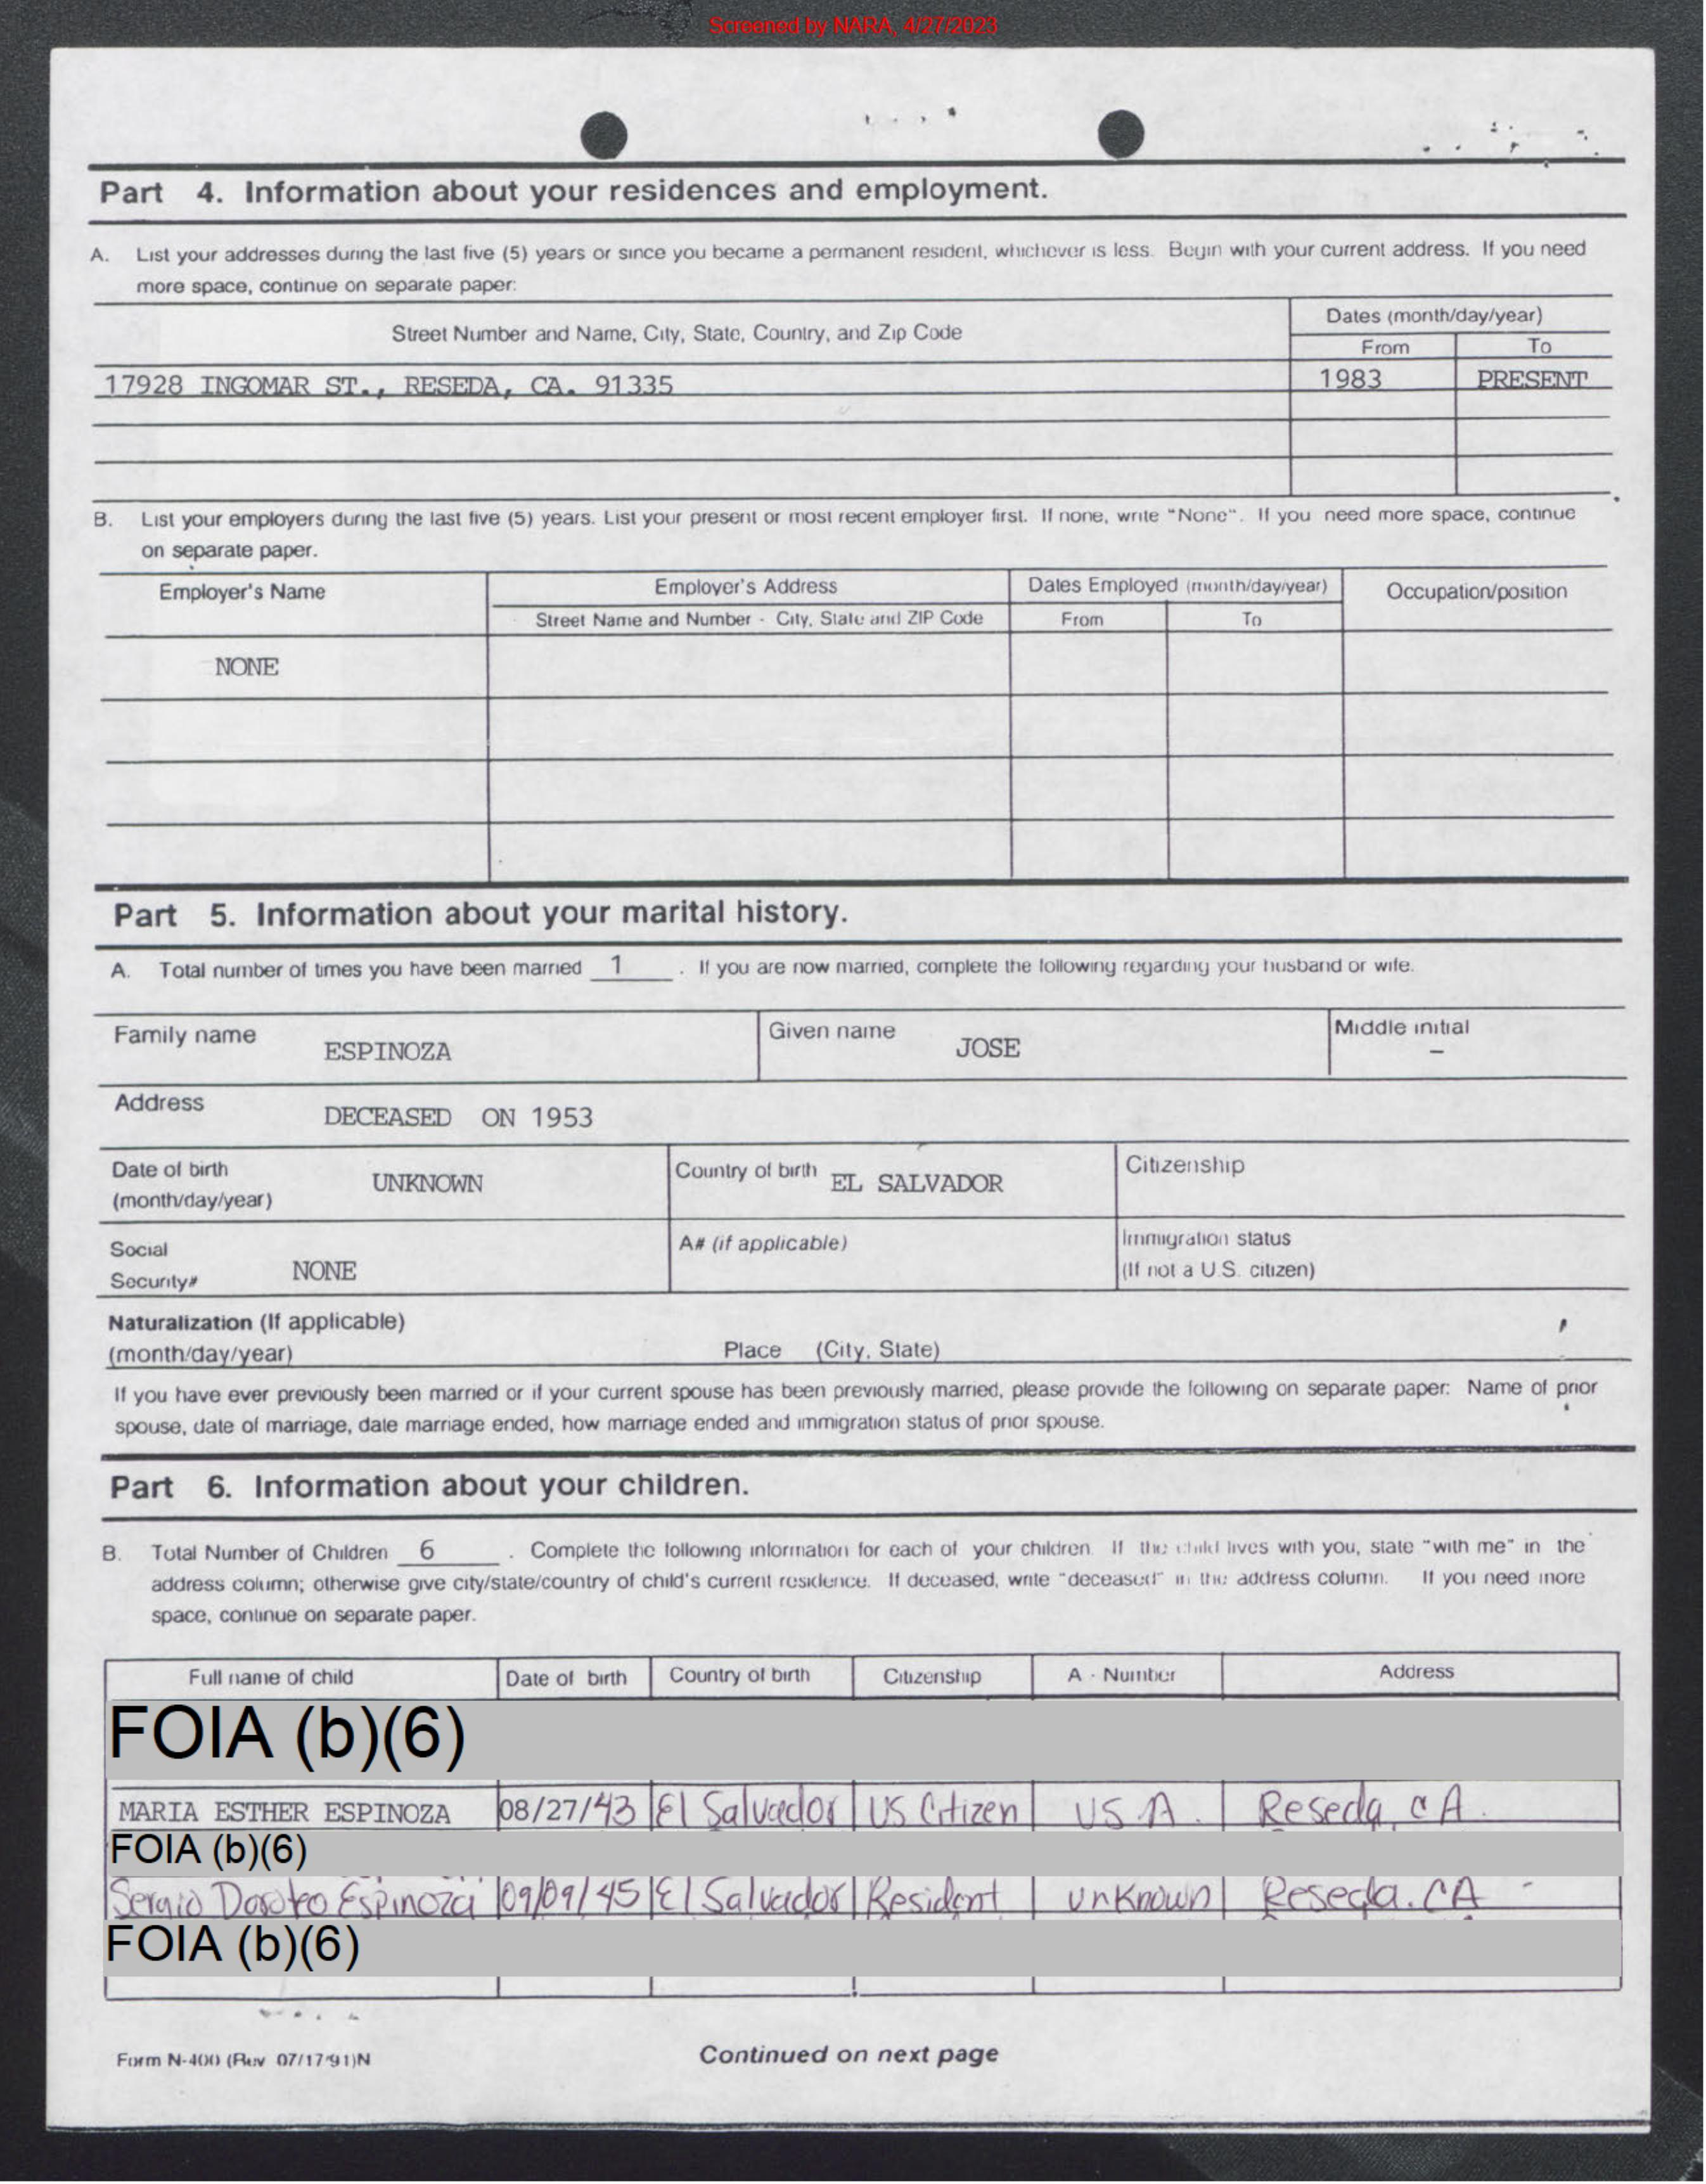 Screened by NARA, 4/27/2023
Part 4. Information about your residences and employment.
A. List your addresses during the last five (5) years or since you became a permanent resident, whichever is less. Begin with your current address. If you need
more space, continue on separate paper:
Street Number and Name, City, State, Country, and Zip Code
Dates (month/day/year)
From To
17928 INGOMAR ST., RESEDA, CA. 91335 1983 PRESENT
B. List your employers during the last five (5) years. List your present or most recent employer first. If none, write "None". If you need more space, continue
on separate paper.
Employer's Name Employer's Address Dates Employed (month/day/year) Occupation/position
Street Name and Number - City, State and ZIP Code From To
NONE
Part 5. Information about your marital history.
A. Total number of times you have been married 1 . If you are now married, complete the following regarding your husband or wife.
Family name ESPINOZA Given name JOSE Middle initial –
Address DECEASED ON 1953
Date of birth
(month/day/year) UNKNOWN Country of birth EL SALVADOR Citizenship
Social
Security# NONE A# (if applicable) Immigration status
(If not a U.S. citizen)
Naturalization (If applicable)
(month/day/year) Place (City, State)
If you have ever previously been married or if your current spouse has been previously married, please provide the following on separate paper: Name of prior
spouse, date of marriage, date marriage ended, how marriage ended and immigration status of prior spouse.
Part 6. Information about your children.
B. Total Number of Children 6 . Complete the following information for each of your children. If the child lives with you, state "with me" in the
address column; otherwise give city/state/country of child's current residence. If deceased, write "deceased" in the address column. If you need more
space, continue on separate paper.
Full name of child Date of birth Country of birth Citizenship A - Number Address
FOIA (b)(6)
MARIA ESTHER ESPINOZA 08/27/43 El Salvador US Citizen U S A. Reseda, CA.
FOIA (b)(6)
Sergio Doroteo Espinoza 09/09/45 El Salvador Resident unknown Reseda. CA -
FOIA (b)(6)
Form N-400 (Rev 07/17/91)N Continued on next page